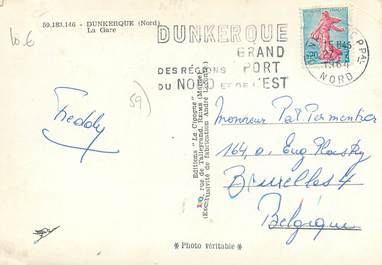 59.183.146 - DUNKERQUE (Nord)
La Gare
10.6
DUNKERQUE
GRAND
DES RÉGIONS PORT
DU NORD ET DE L'EST
1964
NORD
59
Freddy
Editions "La Cigogne"
rue de Talleyrand, REIMS (Marne)
(Exclusivité de fabrication André
Monsieur Pat Parmentier
164, a. Eug Plasky
Bruxelles 4
Belgique
* Photo véritable *